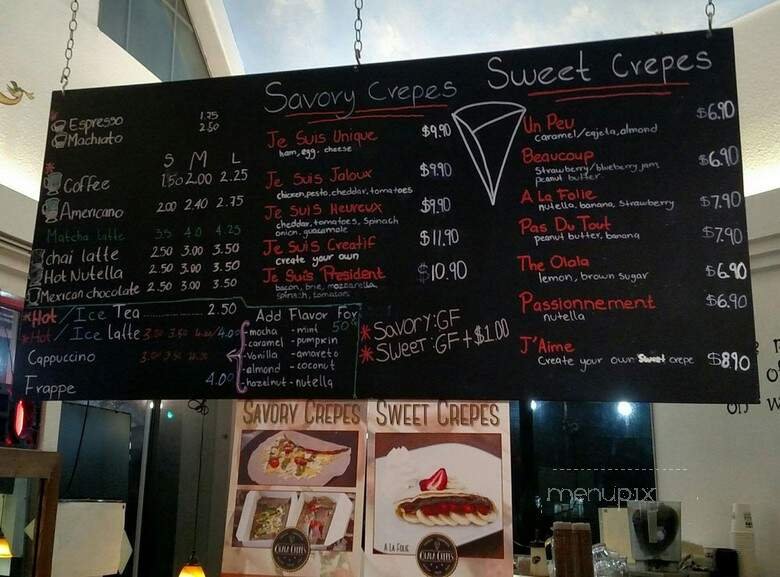 Espresso 1.75
Machiato 2.50
S M L
Coffee 1.50 2.00 2.25
Americano 2.00 2.40 2.75
Matcha latte 3.5 4.0 4.25
chai latte 2.50 3.00 3.50
Hot Nutella 2.50 3.00 3.50
Mexican chocolate 2.50 3.00 3.50
*Hot / Ice Tea 2.50
*Hot / Ice latte 3.50 4.00
Cappuccino
Frappe 4.00
Add Flavor For 50¢
-mocha -mint
-caramel -pumpkin
-vanilla -amareto
-almond -coconut
-hazelnut -nutella
Savory Crepes
Je Suis Unique $9.90
ham, egg, cheese
Je Suis Jaloux $9.90
chicken, pesto, cheddar, tomatoes
Je Suis Heureux $9.90
cheddar, tomatoes, spinach
onion, guacamole
Je Suis Creatif $11.90
create your own
Je Suis President $10.90
bacon, brie, mozzarella
spinach, tomatoes
*Savory: GF
*Sweet: GF + $1.00
Sweet Crepes
Un Peu $6.90
caramel/cajeta, almond
Beaucoup $6.90
strawberry/blueberry jam
peanut butter
A La Folie $7.90
nutella, banana, strawberry
Pas Du Tout $7.90
peanut butter, banana
The Olala $6.90
lemon, brown sugar
Passionnement $6.90
nutella
J'Aime $8.90
Create your own Sweet crepe
SAVORY CREPES
SWEET CREPES
A LA FOLIE
menupix